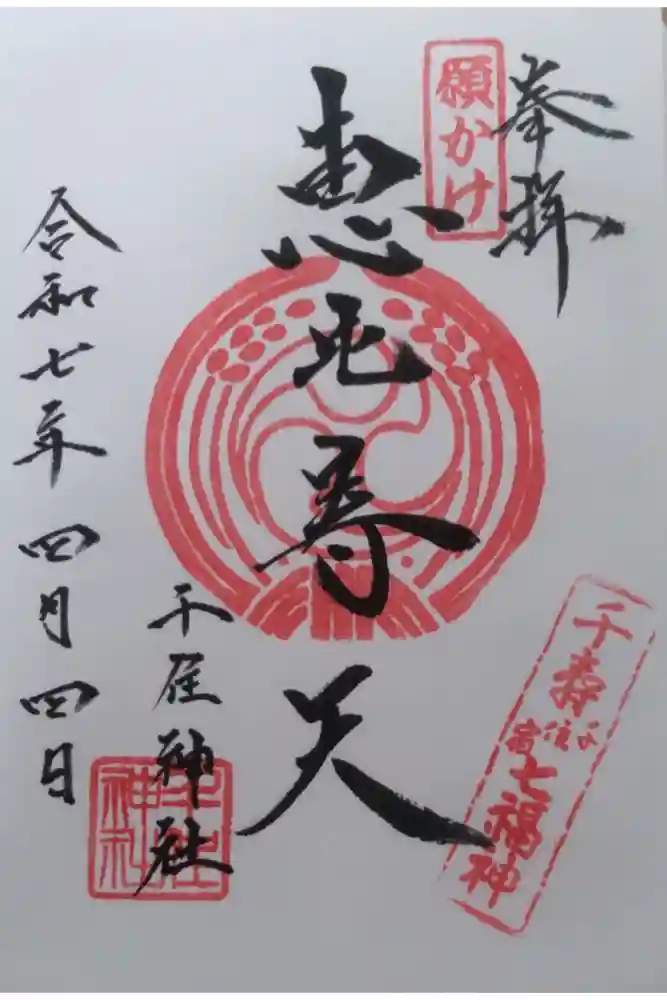 奉拝
願かけ
恵比寿天
千住神社
令和七年四月四日
千寿七福神
千住宿
神社